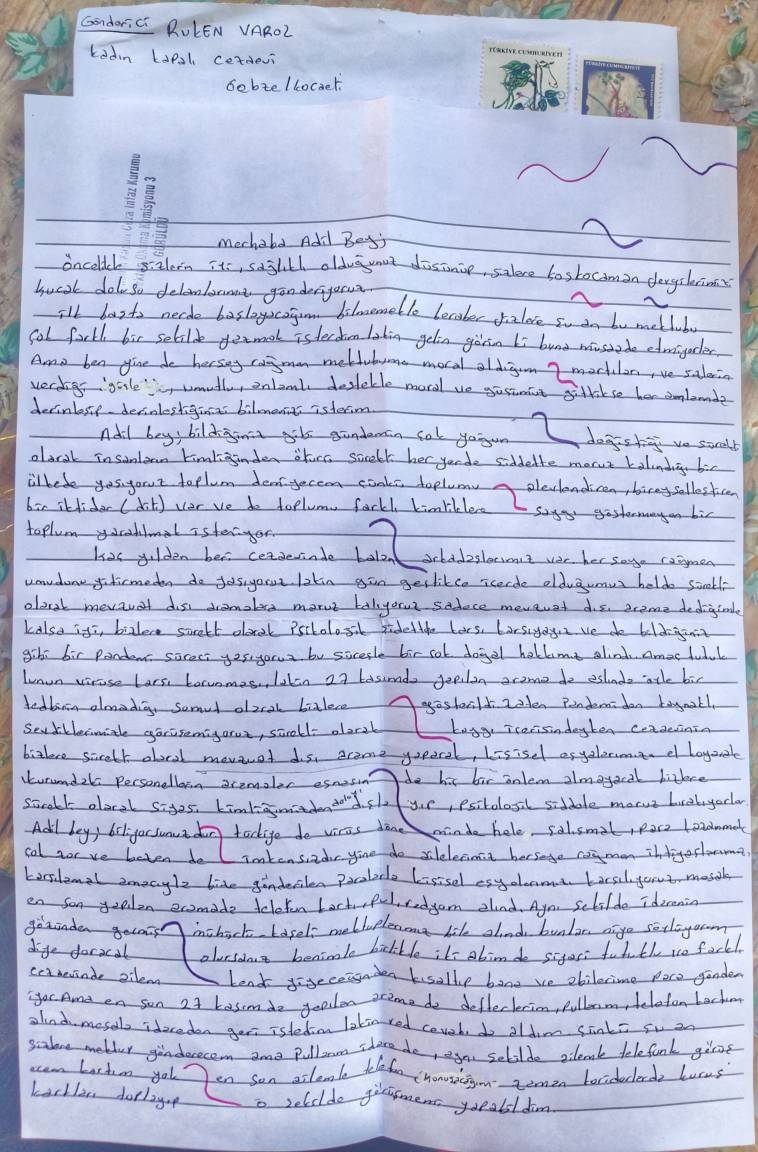 Gönderici RUKEN VAROL
kadın kapalı cezaevi
Gebze/Kocaeli
TÜRKİYE CUMHURİYETİ
TÜRKİYE CUMHURİYETİ
Ceza İnfaz Kurumu
Komisyonu 3
GÖRÜLDÜ
Merhaba Adil Bey;
öncelikle sizlerin iyi, sağlıklı olduğunuz düşünüp, sizlere koskocaman
kucak dolusu gönderiyoruz.
ilk başta nerde başlayacağımı bilmemekle beraber sizlere şu an bu mektubu
çok farklı bir şekilde yazmak isterdim lakin gelin görün ki buna müsaade etmiyorlar.
Ama ben yine de herşey rağmen mektubuma moral aldığım martıları, ve sizlerin
verdiği umutlu, anlamlı destekle moral ve gücümüz gittikçe her anlamda
derinleşip-derinleştiğini bilmenizi isterim.
Adil bey; bildiğiniz gibi gündemin çok yoğun değiştiği ve sürekli
olarak insanların kimliğinden ötürü sürekli heryerde şiddette maruz kalındığı bir
ülkede yaşıyoruz toplum demiyecem çünkü toplumu alevlendiren, bireyselleştiren
bir iktidar (dili) var ve de toplumu farklı kimliklere saygı göstermeyen bir
toplum yaratılmak isteniyor.
kaç yıldan beri cezaevinde kalan arkadaşlarımız var her şeye rağmen
umudunu yitirmeden de yaşıyoruz lakin gün geçtikçe içerde olduğumuz halde sürekli
olarak mevzuat dışı aramalara maruz kalıyoruz sadece mevzuat dışı arama dediğimle
kalsa iyi, bizlere sürekli olarak psikolojik şidettle karşı karşıyayız ve de bildiğiniz
gibi bir Pandemi süreci yaşıyoruz bu süreçle bir çok doğal hakkımız alındı Amaç tutuk
lunun virüse karşı korunması, lakin 27 kasımda yapılan arama da aslında öyle bir
tedbirin olmadığı somut olarak bizlere gösterildi zaten Pandemiden kaynaklı
sevdiklerimizle görüşemiyoruz, sürekli olarak kaygı içerisindeyken cezaevinin
bizlere sürekli olarak mevzuat dışı arama yaparak, kişisel eşyalarımıza el koyarak
kurumdaki personellerin aramalar esnasında hiç bir önlem almayarak bizlere
sürekli olarak siyasi kimliğimizden dolayı dışlayıp, psikolojik şiddete maruz bırakıyorlar.
Adil bey; biliyorsunuzdur türkiye de virüs döneminde hele, çalışmak, para kazanmak
çok zor ve bazen de imkansızdır. yine de ailelerimiz herşeye rağmen ihtiyaçlarımız,
karşılamak amacıyla bize gönderilen paralarla kişisel eşyalarımızı karşılıyoruz. mesela
en son yapılan aramada telefon kartı, pul, radyom alındı. Aynı şekilde idarenin
gözünden geçmiş kaşeli mektuplarımız bile alındı bunları niye söylüyorum
diye soracak olursanız benimle birlikte iki abim de siyasi tutuklu ve farklı
cezaevinde ailem kendi yiyeceğinden kısallıp bana ve abilerime para gönder
iyor. Ama en son 27 kasım da yapılan arama da defterlerim, pullarım, telefon kartım
alındı. mesela idareden geri istedim lakin red cevabı da aldım çünkü şu an
sizlere mektup gönderecem ama pullarım idare de, aynı şekilde ailemle telefonla görüş
ecem kartım yok en son ailemle telefon konuşacağım zaman koridorlarda kuruş
kartları toplayıp o şekilde görüşmemi yapabildim.